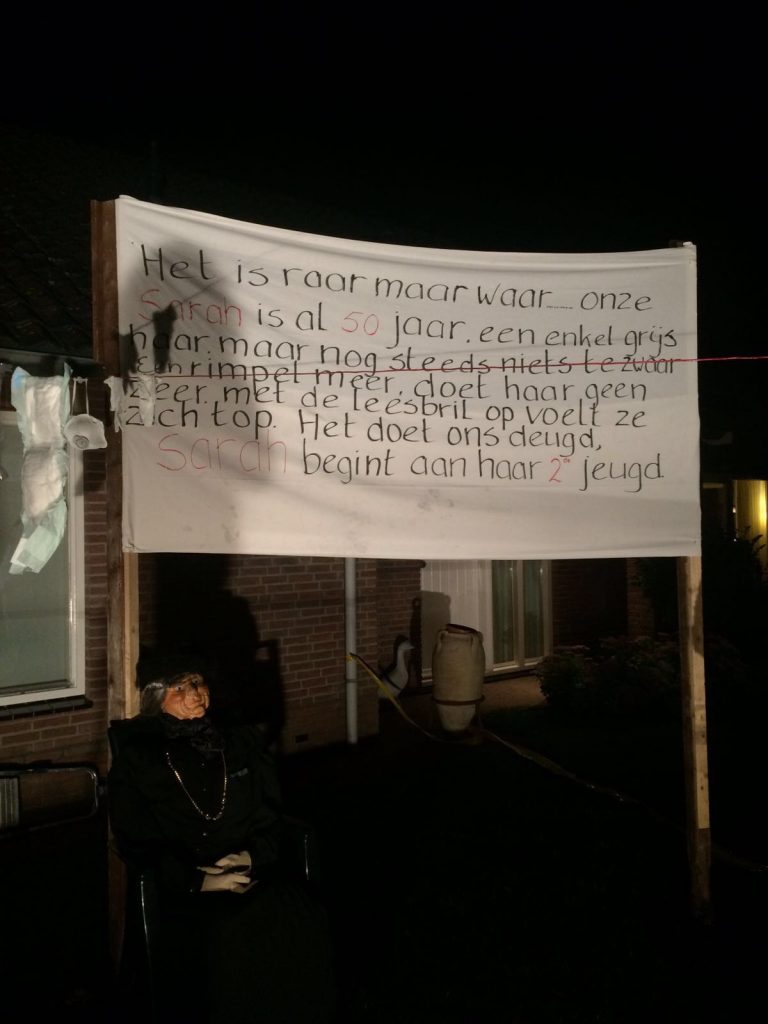 Het is raar maar waar..... onze
Sarah is al 50 jaar. een enkel grijs
haar, maar nog steeds niets te zwaar
Een rimpel meer, doet haar geen
zeer. met de leesbril op voelt ze
zich top. Het doet ons deugd,
Sarah begint aan haar 2de jeugd